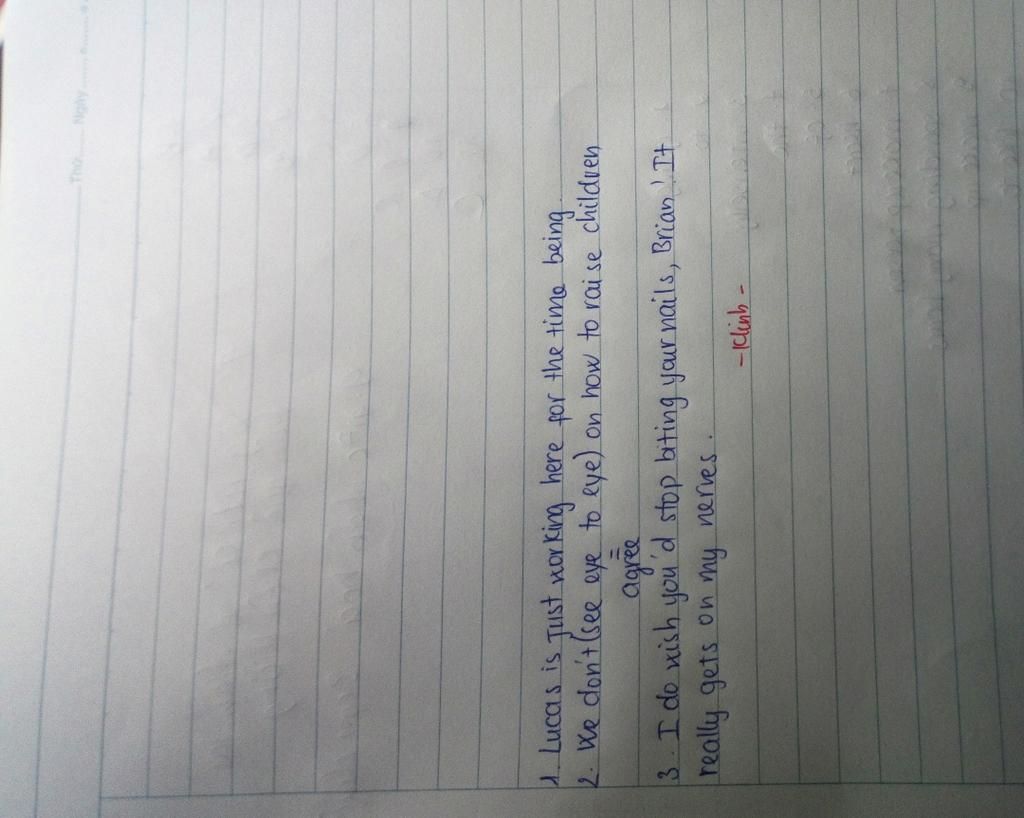 Thứ Ngày
1. Lucas is just working here for the time being.
2. We don't (see eye to eye) on how to raise children
=
agree
3. I do wish you'd stop biting your nails, Brian! It
really gets on my nerves.